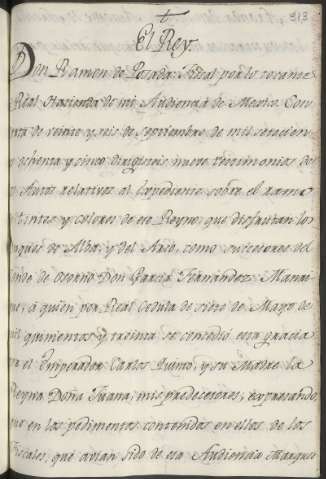 313
El Rey.
Don Ramon de Posada: Fiscal por lo tocante
Real Hacienda de mi Audiencia de Mexico. Con
rta de veinte y seis de Septiembre de mil setecien
s ochenta y cinco dirigisteis nueve testimonios de
s Autos relativos al Expediente sobre el ramo
tintes y colores de ese Reyno, que disfrutan los
uques de Alba, y del Arco, como succesores del
onde de Osorno Don Garcia Fernandez Manri
ue, á quien por Real Cedula de siete de Mayo de
il quinientos y treinta se concedió esta gracia
r el Emperador Carlos Quinto, y su Madre la
Reyna Doña Juana, mis predecesores, expresando
ue en los pedimentos contenidos en ellos de los
Fiscales, que avian sido de esa Audiencia Marques